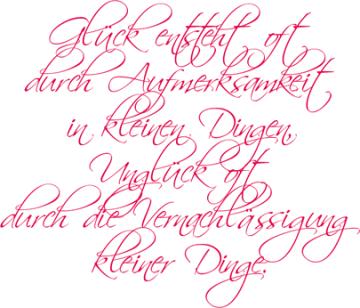 Glück entsteht oft
durch Aufmerksamkeit
in kleinen Dingen,
Unglück oft,
durch die Vernachlässigung
kleiner Dinge.